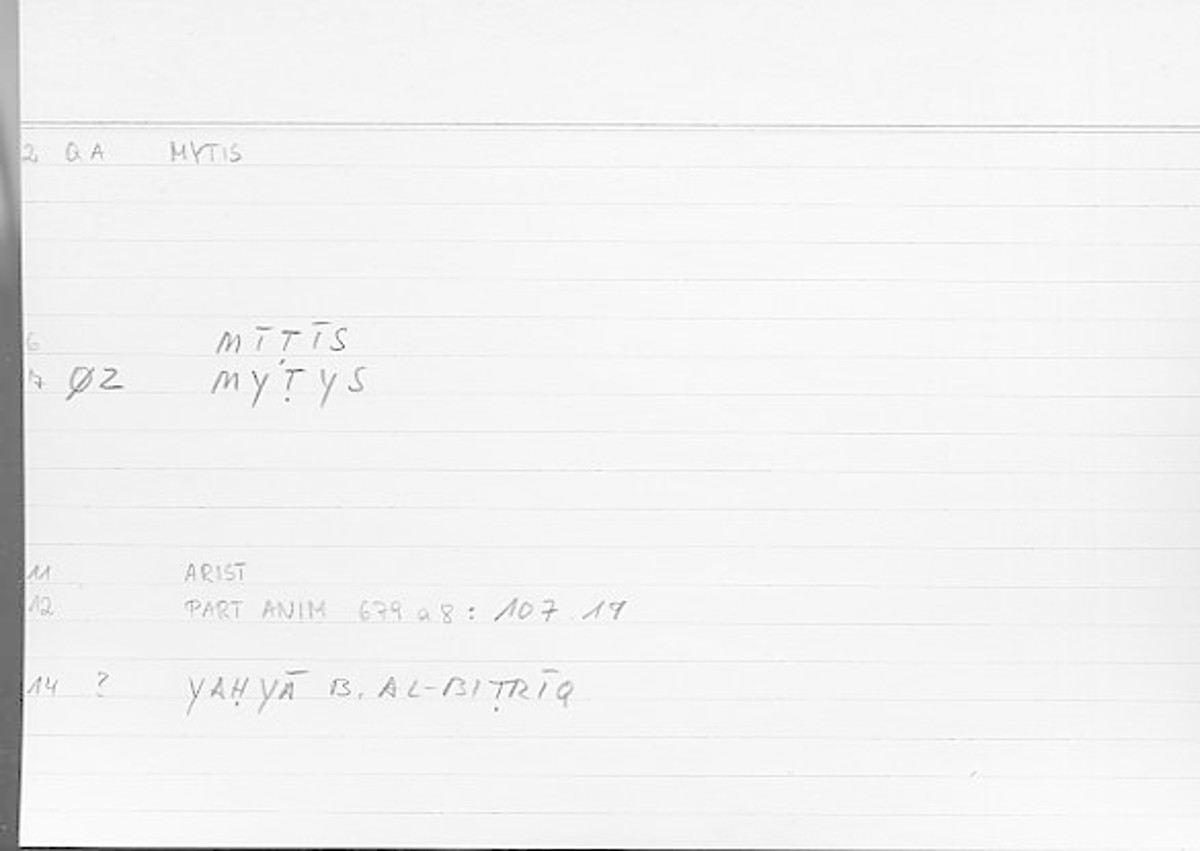 2 QA MYTIS
6 MĪṬĪS
7 Ø2 MYṬYS
11 ARIST
12 PART ANIM 679 a 8 : 107.19
14 ? YAḤYĀ B. AL-BIṬRĪQ